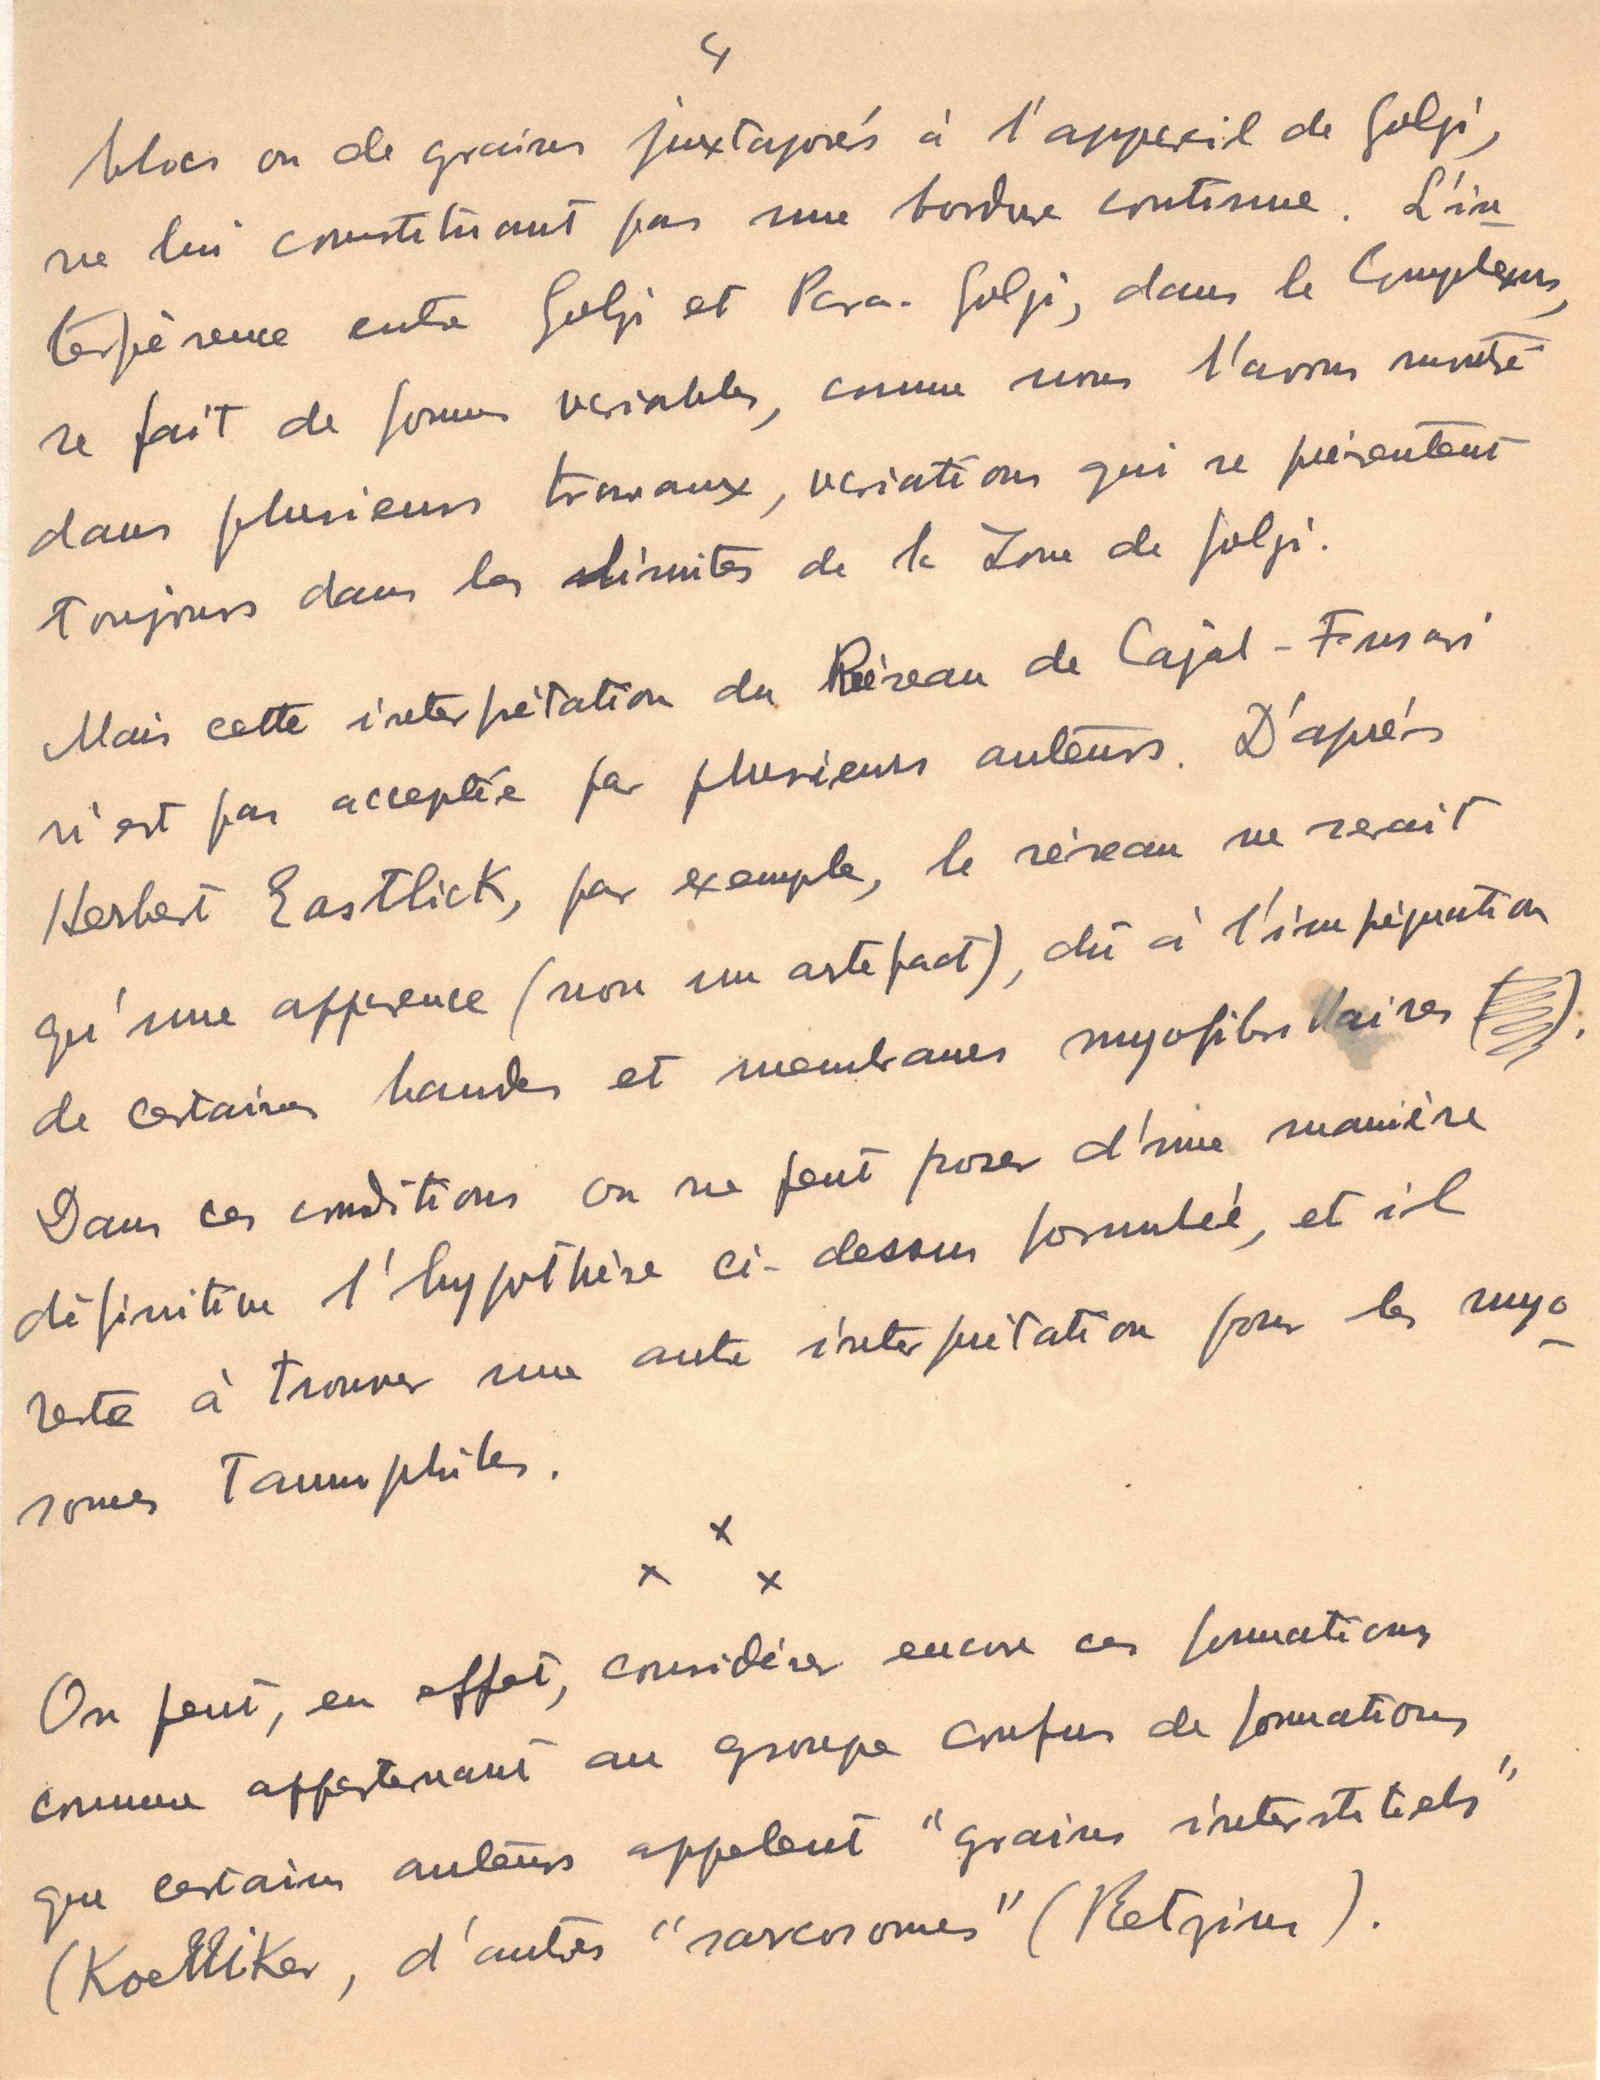 4
blocs ou de grains juxtaposés à l'appareil de Golgi,
ne lui constituant pas une bordure continue. L'in-
terférence entre Golgi et Para-Golgi, dans le Complexus,
se fait de formes variables, comme nous l'avons montré
dans plusieurs travaux, variations qui se présentent
toujours dans les limites de la Zone de Golgi.
Mais cette interprétation du Réseau de Cajal-Fusari
n'est pas acceptée par plusieurs auteurs. D'après
Herbert Eastlick, par exemple, le réseau ne serait
qu'une apparence (non un artefact), dû à l'imprégnation
de certaines bandes et membranes myofibrillaires ( ).
Dans ces conditions on ne peut poser d'une manière
définitive l'hypothèse ci-dessus formulée, et il
reste à trouver une autre interprétation pour les myo-
somes tannophiles.
x x x
On peut, en effet, considérer encore ces formations
comme appartenant au groupe confus de formations
que certains auteurs appelent "grains interstitiels"
(Koelliker, d'autres "sarcosomes" (Retzius).